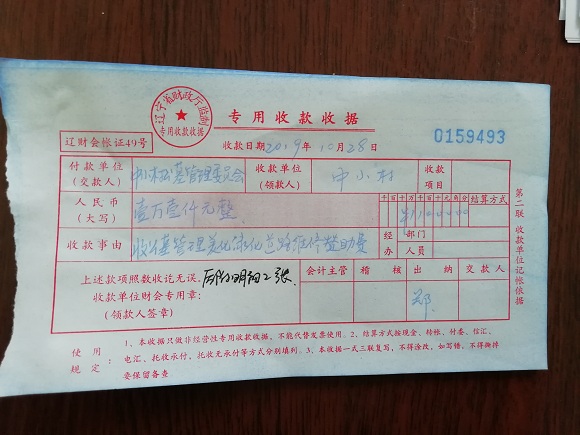 辽宁省财政厅监制
专用收款收据
专用收款收据
辽财会帐证49号
收款日期2019年10月28日
0159493
付款单位
(交款人)
管理委员会
收款单位
(领款人)
中小村
收款
项目
人民币
(大写)
壹万壹仟元整
千百十万千百十元角分
结算方式
¥1100000
收款事由
道路维修
经办
部门
人员
上述款项照数收讫无误。
后附明细2张
收款单位财会专用章:
(领款人签章)
会计主管
稽核
出纳
交款人
郑
第二联 收款单位记帐依据
使用规定:
1、本收据只做非经营性专用收款收据,不能代替发票使用。2、结算方式按现金、转帐、付委、信汇、
电汇、托收承付,托收无承付等方式分别填列。3、本收据一式三联复写,不得涂改,如写错,不得撕掉
要保留备查